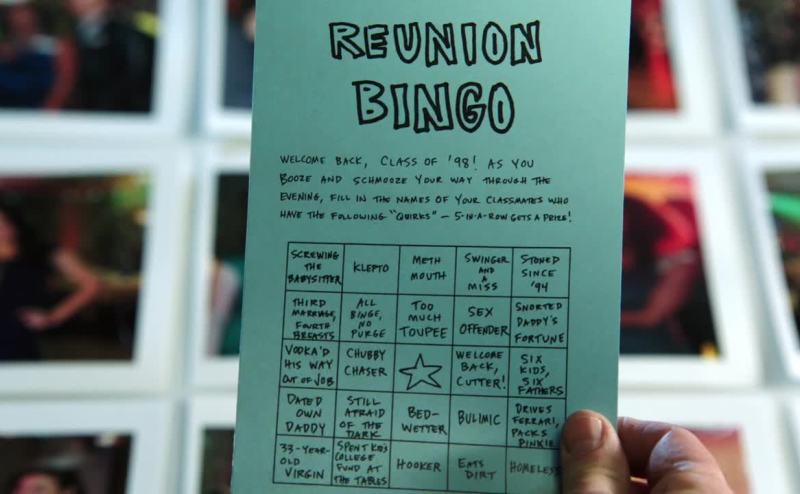 REUNION
BINGO
WELCOME BACK, CLASS OF '98! AS YOU
BOOZE AND SCHMOOZE YOUR WAY THROUGH THE
EVENING, FILL IN THE NAMES OF YOUR CLASSMATES WHO
HAVE THE FOLLOWING "QUIRKS" — 5-IN-A-ROW GETS A PRIZE!
SCREWING
THE
BABYSITTER
KLEPTO
METH
MOUTH
SWINGER
AND
A
MISS
STONED
SINCE
'94
THIRD
MARRIAGE,
FOURTH
BREASTS
ALL
BINGE,
NO
PURGE
TOO
MUCH
TOUPEE
SEX
OFFENDER
SNORTED
DADDY'S
FORTUNE
VODKA'D
HIS WAY
OUT OF JOB
CHUBBY
CHASER
WELCOME
BACK,
CUTTER!
SIX
KIDS,
SIX
FATHERS
DATED
OWN
DADDY
STILL
AFRAID
OF THE
DARK
BED-
WETTER
BULIMIC
DRIVES
FERRARI,
PACKS
PINKIE
33-YEAR-
OLD
VIRGIN
SPENT KID'S
COLLEGE
FUND AT
THE TABLES
HOOKER
EATS
DIRT
HOMELESS